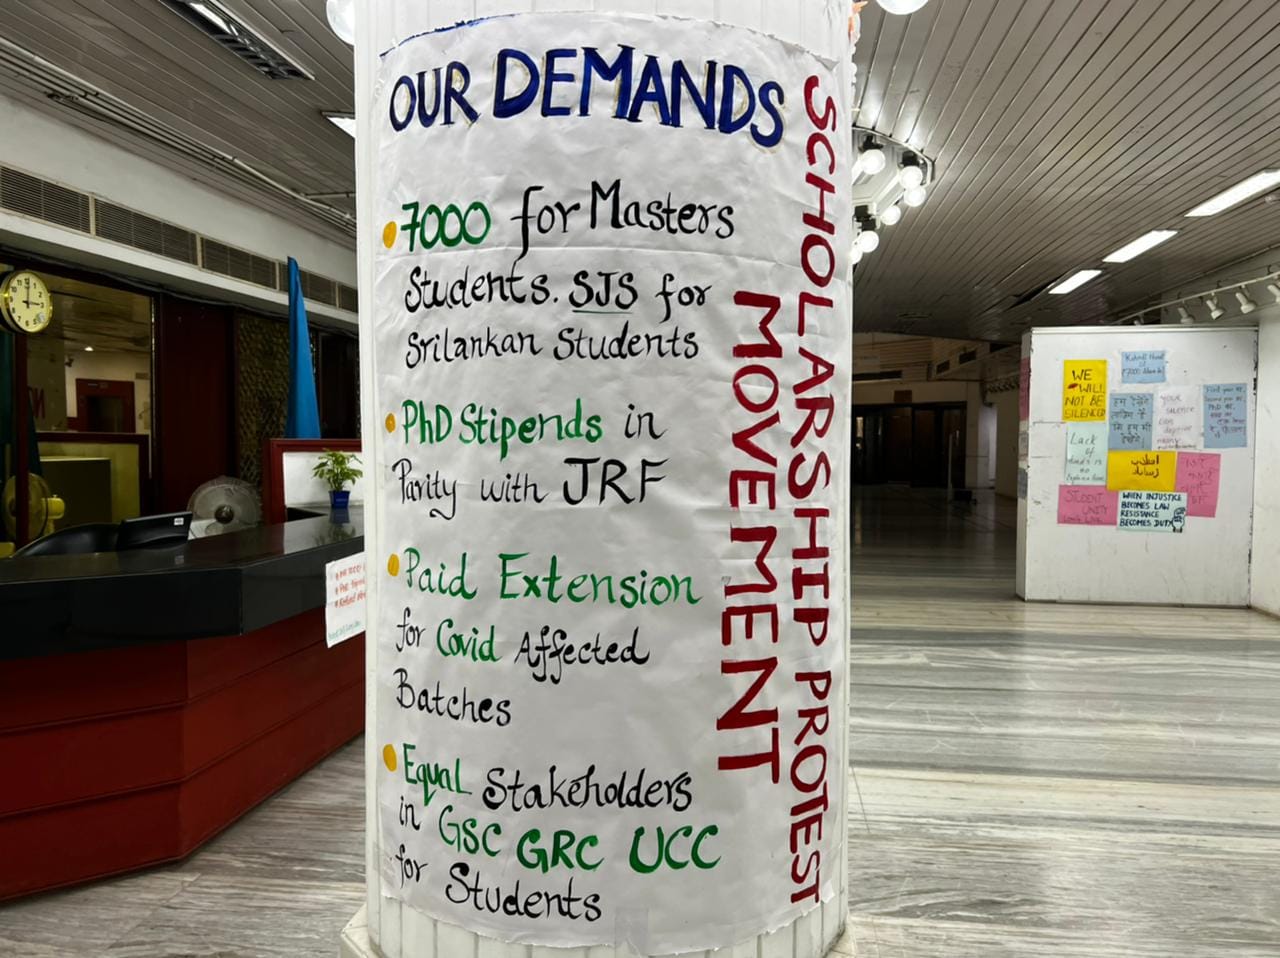 OUR DEMANDS
7000 for Masters
Students. SJS for
Srilankan Students
PhD Stipends in
Parity with JRF
Paid Extension
for Covid Affected
Batches
Equal Stakeholders
in GSC GRC UCC
for Students
SCHOLARSHIP PROTEST
MOVEMENT
WE
WILL
NOT BE
SILENCED
YOUR
SILENCE
Lack
of
STUDENT
UNITY
WHEN INJUSTICE
BECOMES LAW
RESISTANCE
BECOMES DUTY